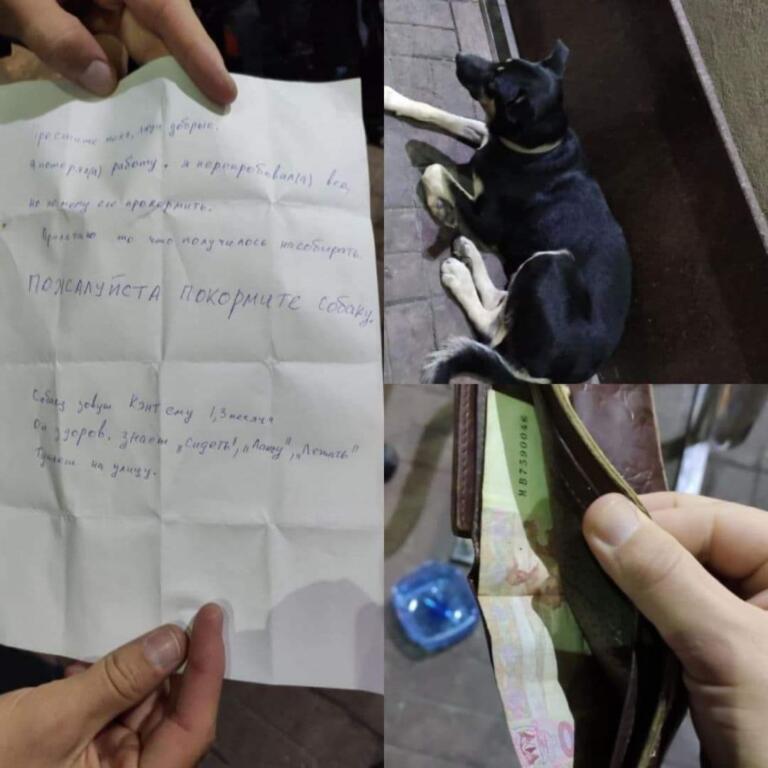 Простите меня, люди добрые.
Я потерял(а) работу. я перепробовал(а) все,
но не могу его прокормить.
Прилагаю то что получилось насобирать.
ПОЖАЛУЙСТА ПОКОРМИТЕ собаку.
Собаку зовут Кэнт ему 1,3 месяца
Он здоров. знает „Сидеть", „Лапу", „Лежать"
Туалет на улицу.
НВ7390046